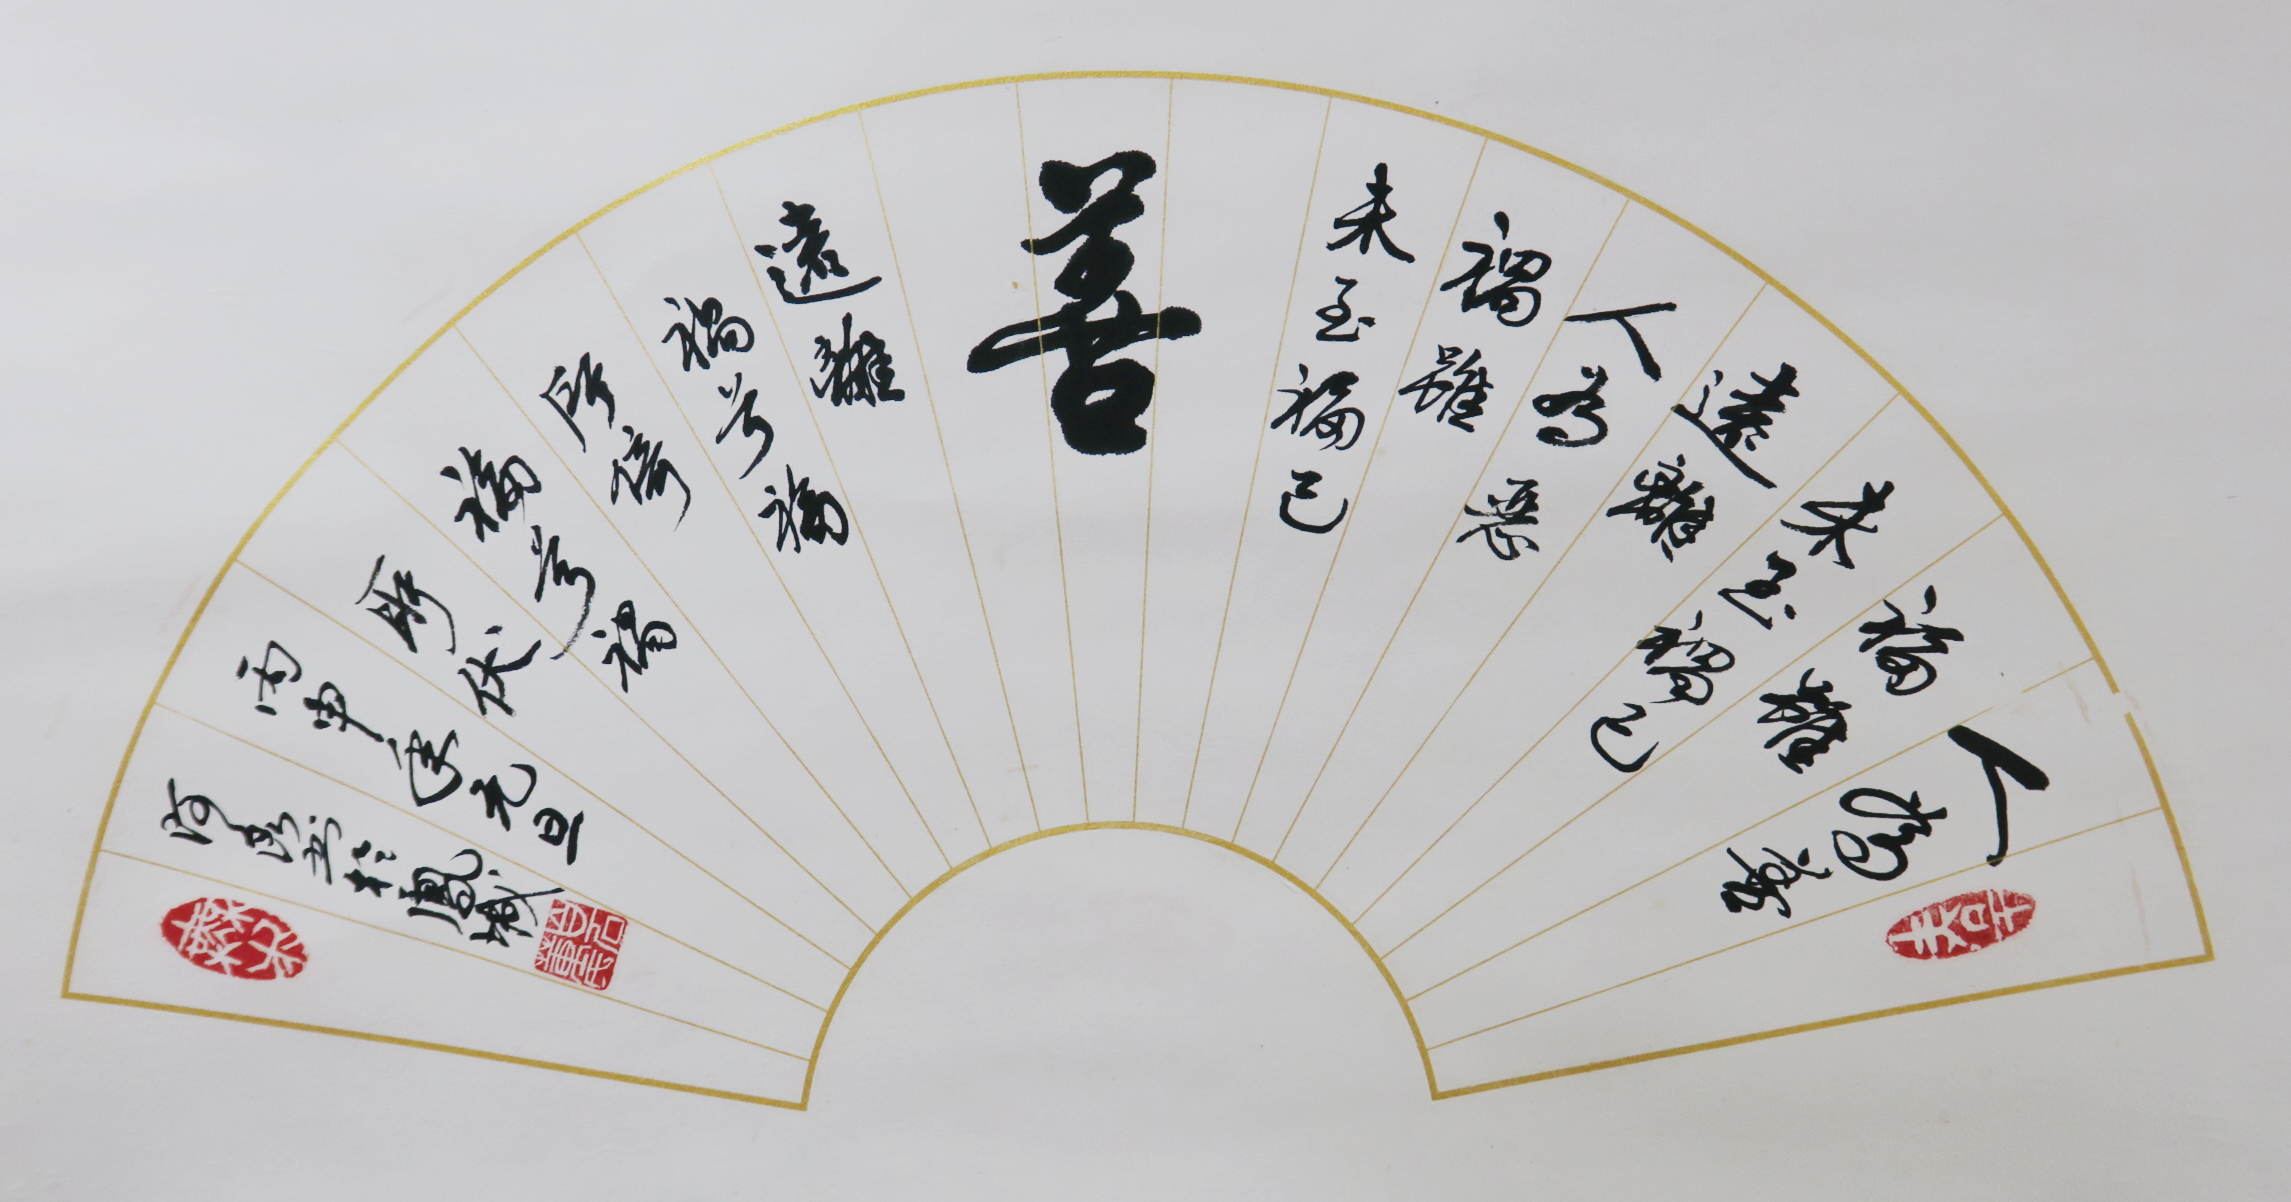 人為善
福雖
未至禍已
遠離
人為惡
禍雖
未至福已
善
遠離
禍兮福
所倚
福兮禍
所伏
丙申年元旦
书於鳳城